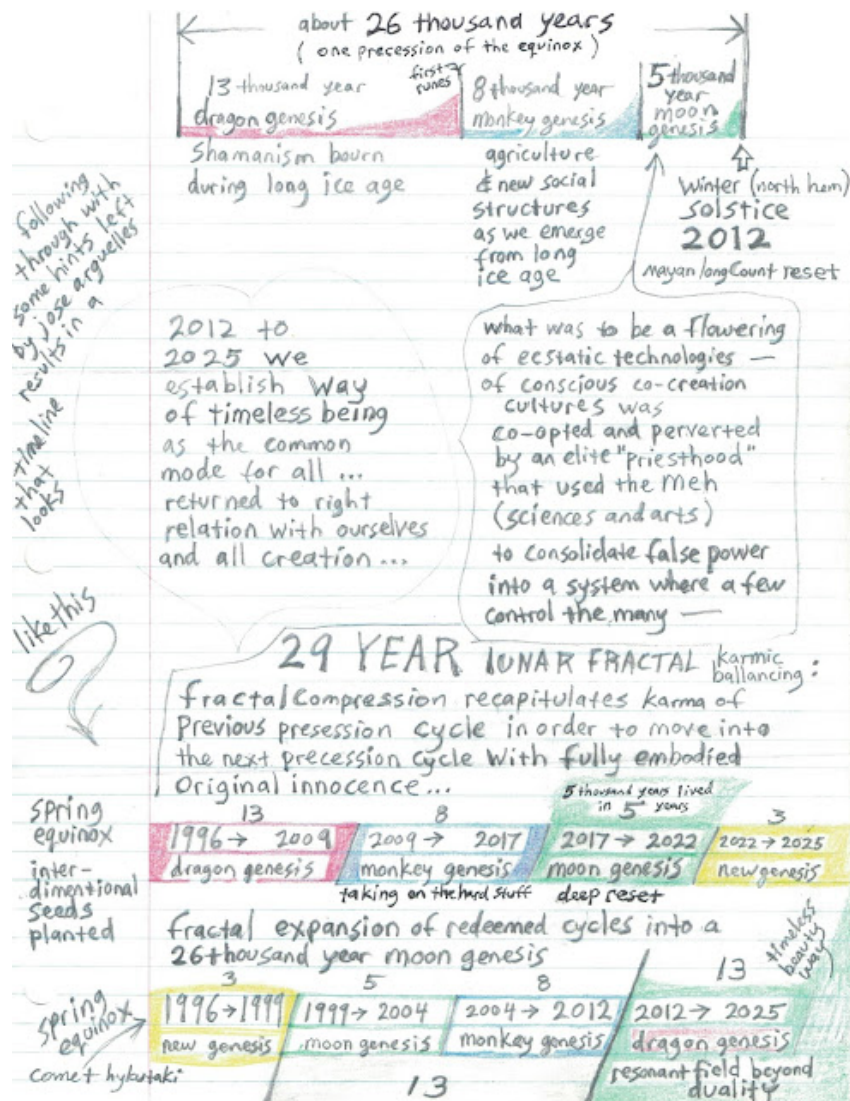 about 26 thousand years
( one precession of the equinox )
13 thousand year
dragon genesis
first
runes
8 thousand year
monkey genesis
5 thousand
year
moon
genesis
Shamanism bourn
during long ice age
agriculture
& new social
structures
as we emerge
from long
ice age
Winter (north hem)
solstice
2012
mayan long Count reset
following
through with
some hints left
by jose arguelles
results in a
timeline
that
looks
like this
2012 to
2025 we
establish way
of timeless being
as the common
mode for all ...
returned to right
relation with ourselves
and all creation ...
what was to be a flowering
of ecstatic technologies —
of conscious co-creation
cultures was
co-opted and perverted
by an elite "priesthood"
that used the meh
(sciences and arts)
to consolidate false power
into a system where a few
control the many —
29 YEAR LUNAR FRACTAL karmic
ballancing :
fractal Compression recapitulates karma of
Previous presession cycle in order to move into
the next precession cycle with fully embodied
Original innocence ...
5 thousand years lived
in 5 years
spring
equinox
inter-
dimentional
seeds
planted
13
1996 → 2009
dragon genesis
8
2009 → 2017
monkey genesis
taking on the hard stuff
2017 → 2022
moon genesis
deep reset
3
2022 → 2025
new genesis
fractal expansion of redeemed cycles into a
26 thousand year moon genesis
timeless
beauty
way
spring
equinox
comet hykutaki
3
1996 → 1999
new genesis
5
1999 → 2004
moon genesis
8
2004 → 2012
monkey genesis
13
13
2012 → 2025
dragon genesis
resonant field beyond
duality